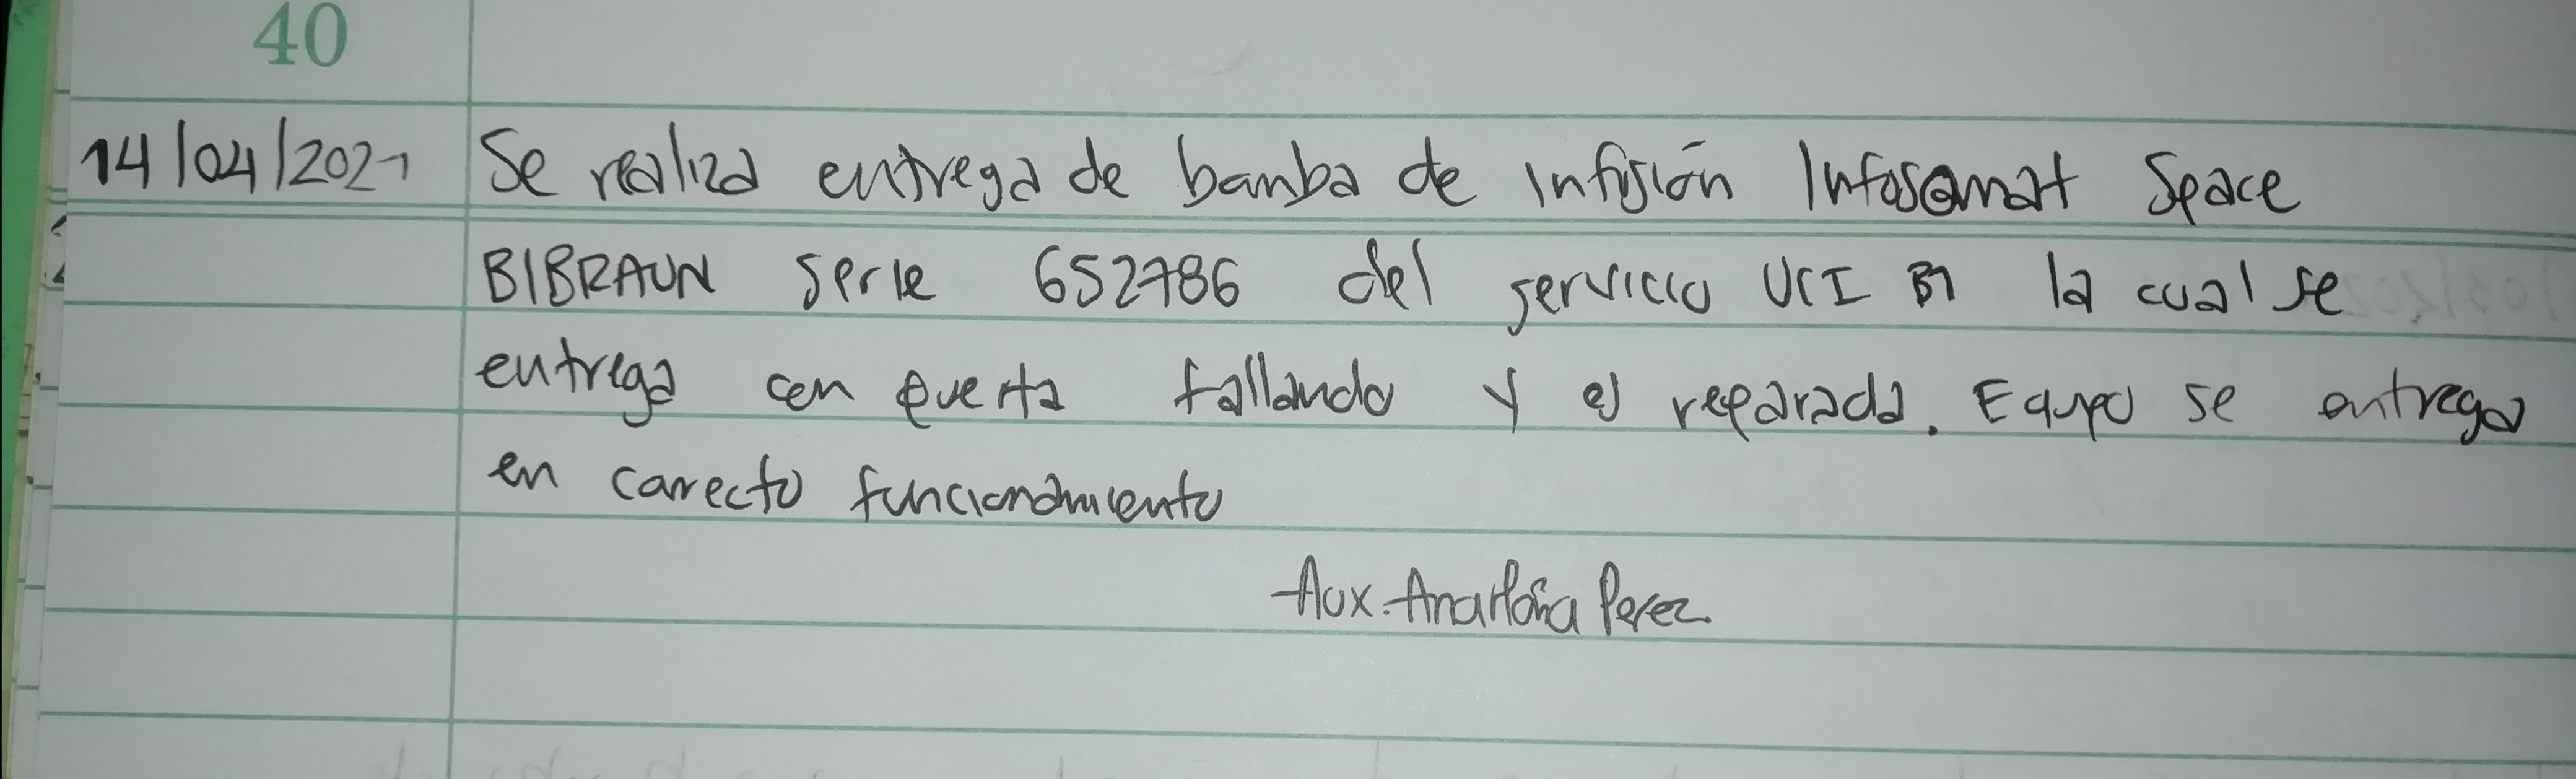 40
14/04/2021 Se realiza entrega de bamba de infusión Infosomat Space
B|BRAUN serie 652786 del servicio UCI B1 la cual se
entrega con puerta fallando y es reparada. Equipo se entrega
en correcto funcionamiento
Aux. Ana Perez